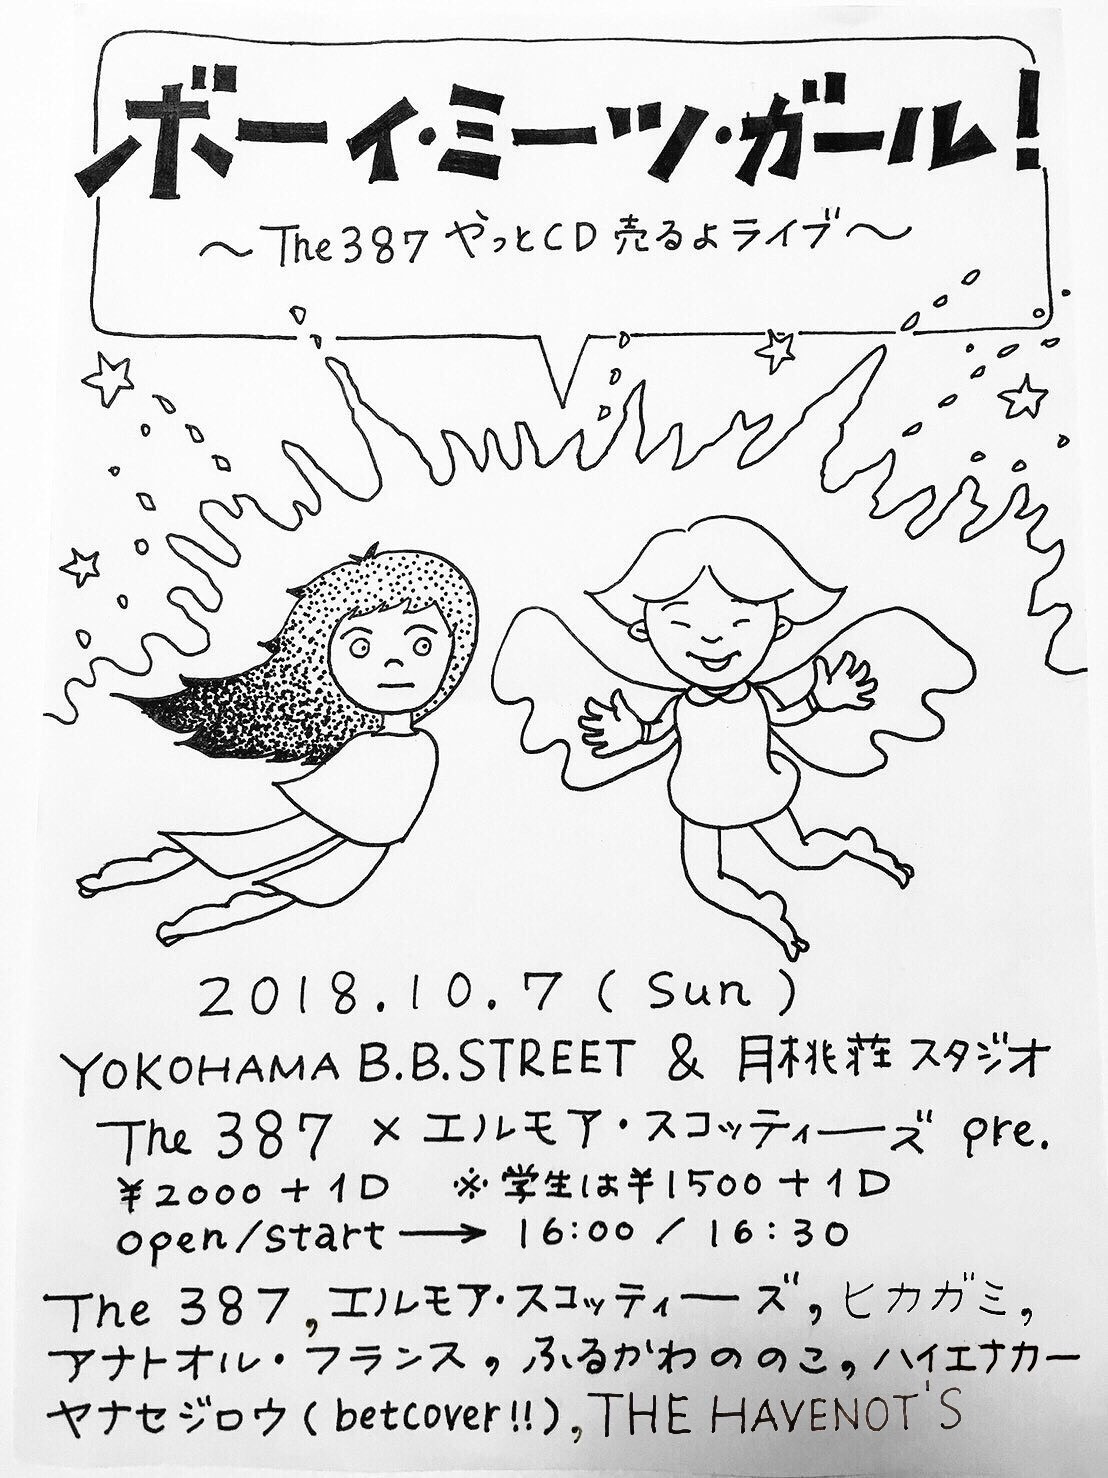 ボーイ・ミーツ・ガール!
〜The 387 やっとCD 売るよライブ〜
2018.10.7 (Sun)
YOKOHAMA B.B.STREET & 月桃荘スタジオ
The 387 × エルモア・スコッティーズ pre.
¥2000+1D ※学生は¥1500+1D
open/start → 16:00 / 16:30
The 387, エルモア・スコッティーズ, ヒカガミ,
アナトオル・フランス, ふるかわののこ, ハイエナカー
ヤナセジロウ(betcover!!), THE HAVENOT'S